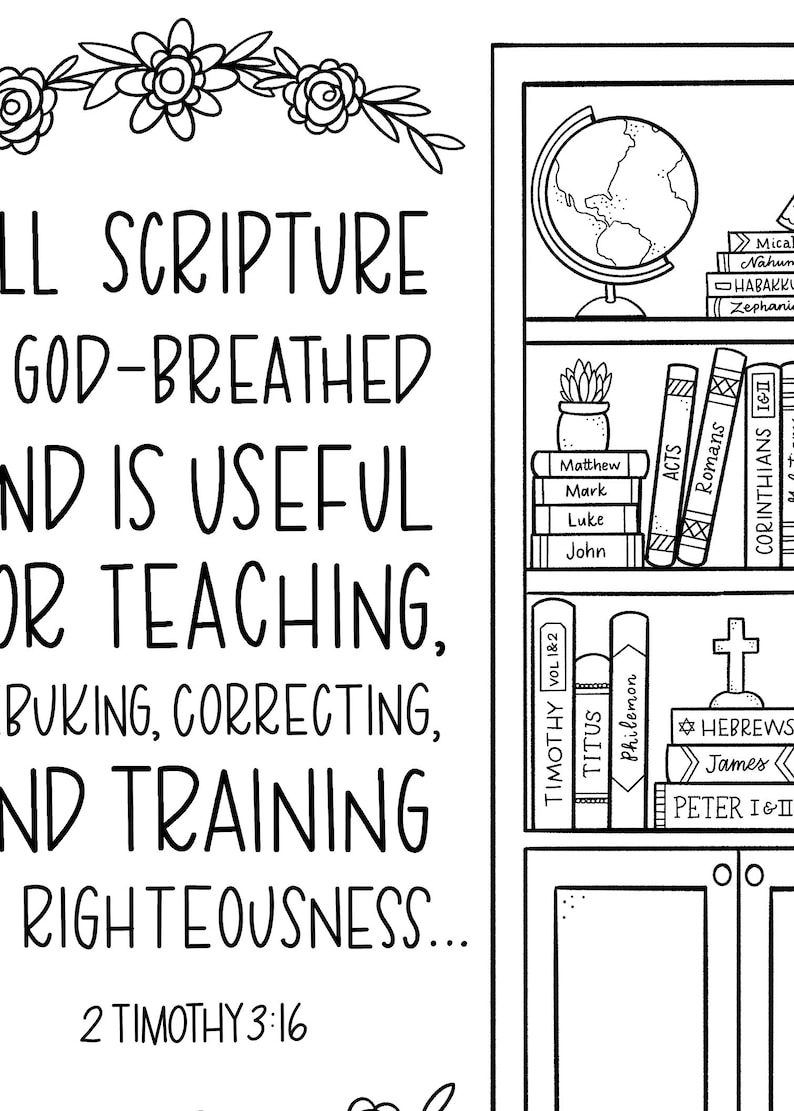 LL SCRIPTURE
GOD-BREATHED
ND IS USEFUL
OR TEACHING,
EBUKING, CORRECTING,
ND TRAINING
RIGHTEOUSNESS...
2 TIMOTHY 3:16
Mica
Nahum
HABAKKU
Zephani
Matthew
Mark
Luke
John
ACTS
Romans
CORINTHIANS I&II
TIMOTHY VOL 1&2
TITUS
Philemon
HEBREWS
James
PETER I&II